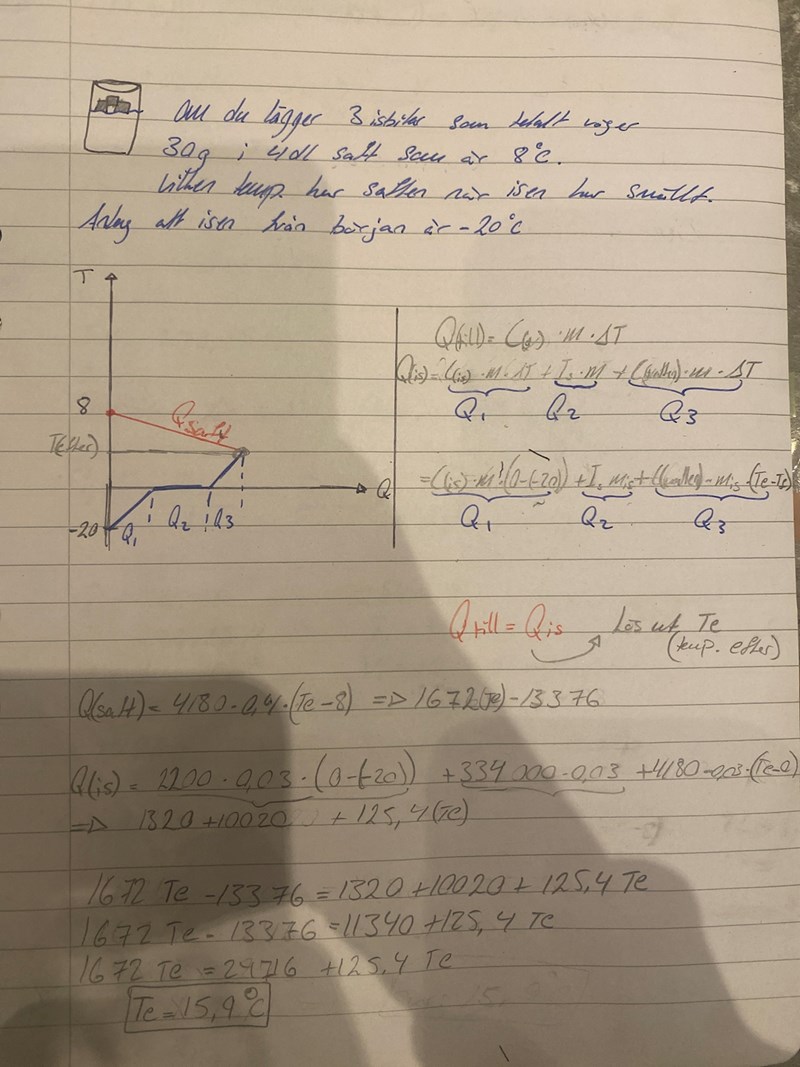 Om du lägger 3 isbitar som totalt väger
30g i 4dl saft som är 8°C.
Vilken temp. har saften när isen har smält.
Antag att isen från början är -20°C
T
8
Qsaft
T(efter)
Q
-20
Q1 Q2 Q3
Q(till) = C · m · ΔT
Q(is) = C(is) · m · ΔT + Is · m + C(vatten) · m · ΔT
Q1 Q2 Q3
= C(is) · m · (0-(-20)) + Is mis + C(vatten) · mis · (Te-Ts)
Q1 Q2 Q3
Qtill = Qis Lös ut Te
(temp. efter)
Q(saft) = 4180 · 0,4 · (Te-8) => 1672(Te) - 13376
Q(is) = 2200 · 0,03 · (0-(-20)) + 334 000 · 0,03 + 4180 · 0,03 · (Te-0)
=> 1320 + 10020 + 125,4(Te)
1672 Te - 13376 = 1320 + 10020 + 125,4 Te
1672 Te - 13376 = 11340 + 125,4 Te
1672 Te = 24716 + 125,4 Te
Te = 15,9°C